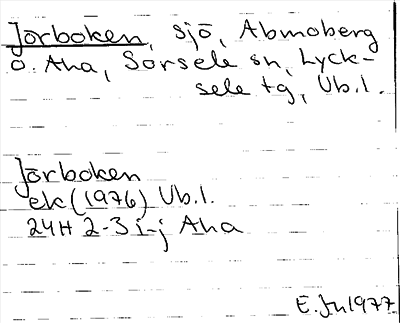 Jorboken, sjö, Abmoberg
o. Aha, Sorsele sn, Lyck-
sele tg, Vb.l.
Jorboken
ek (1976) Vb.l.
24H 2-3 i-j Aha
E.Jn 1977